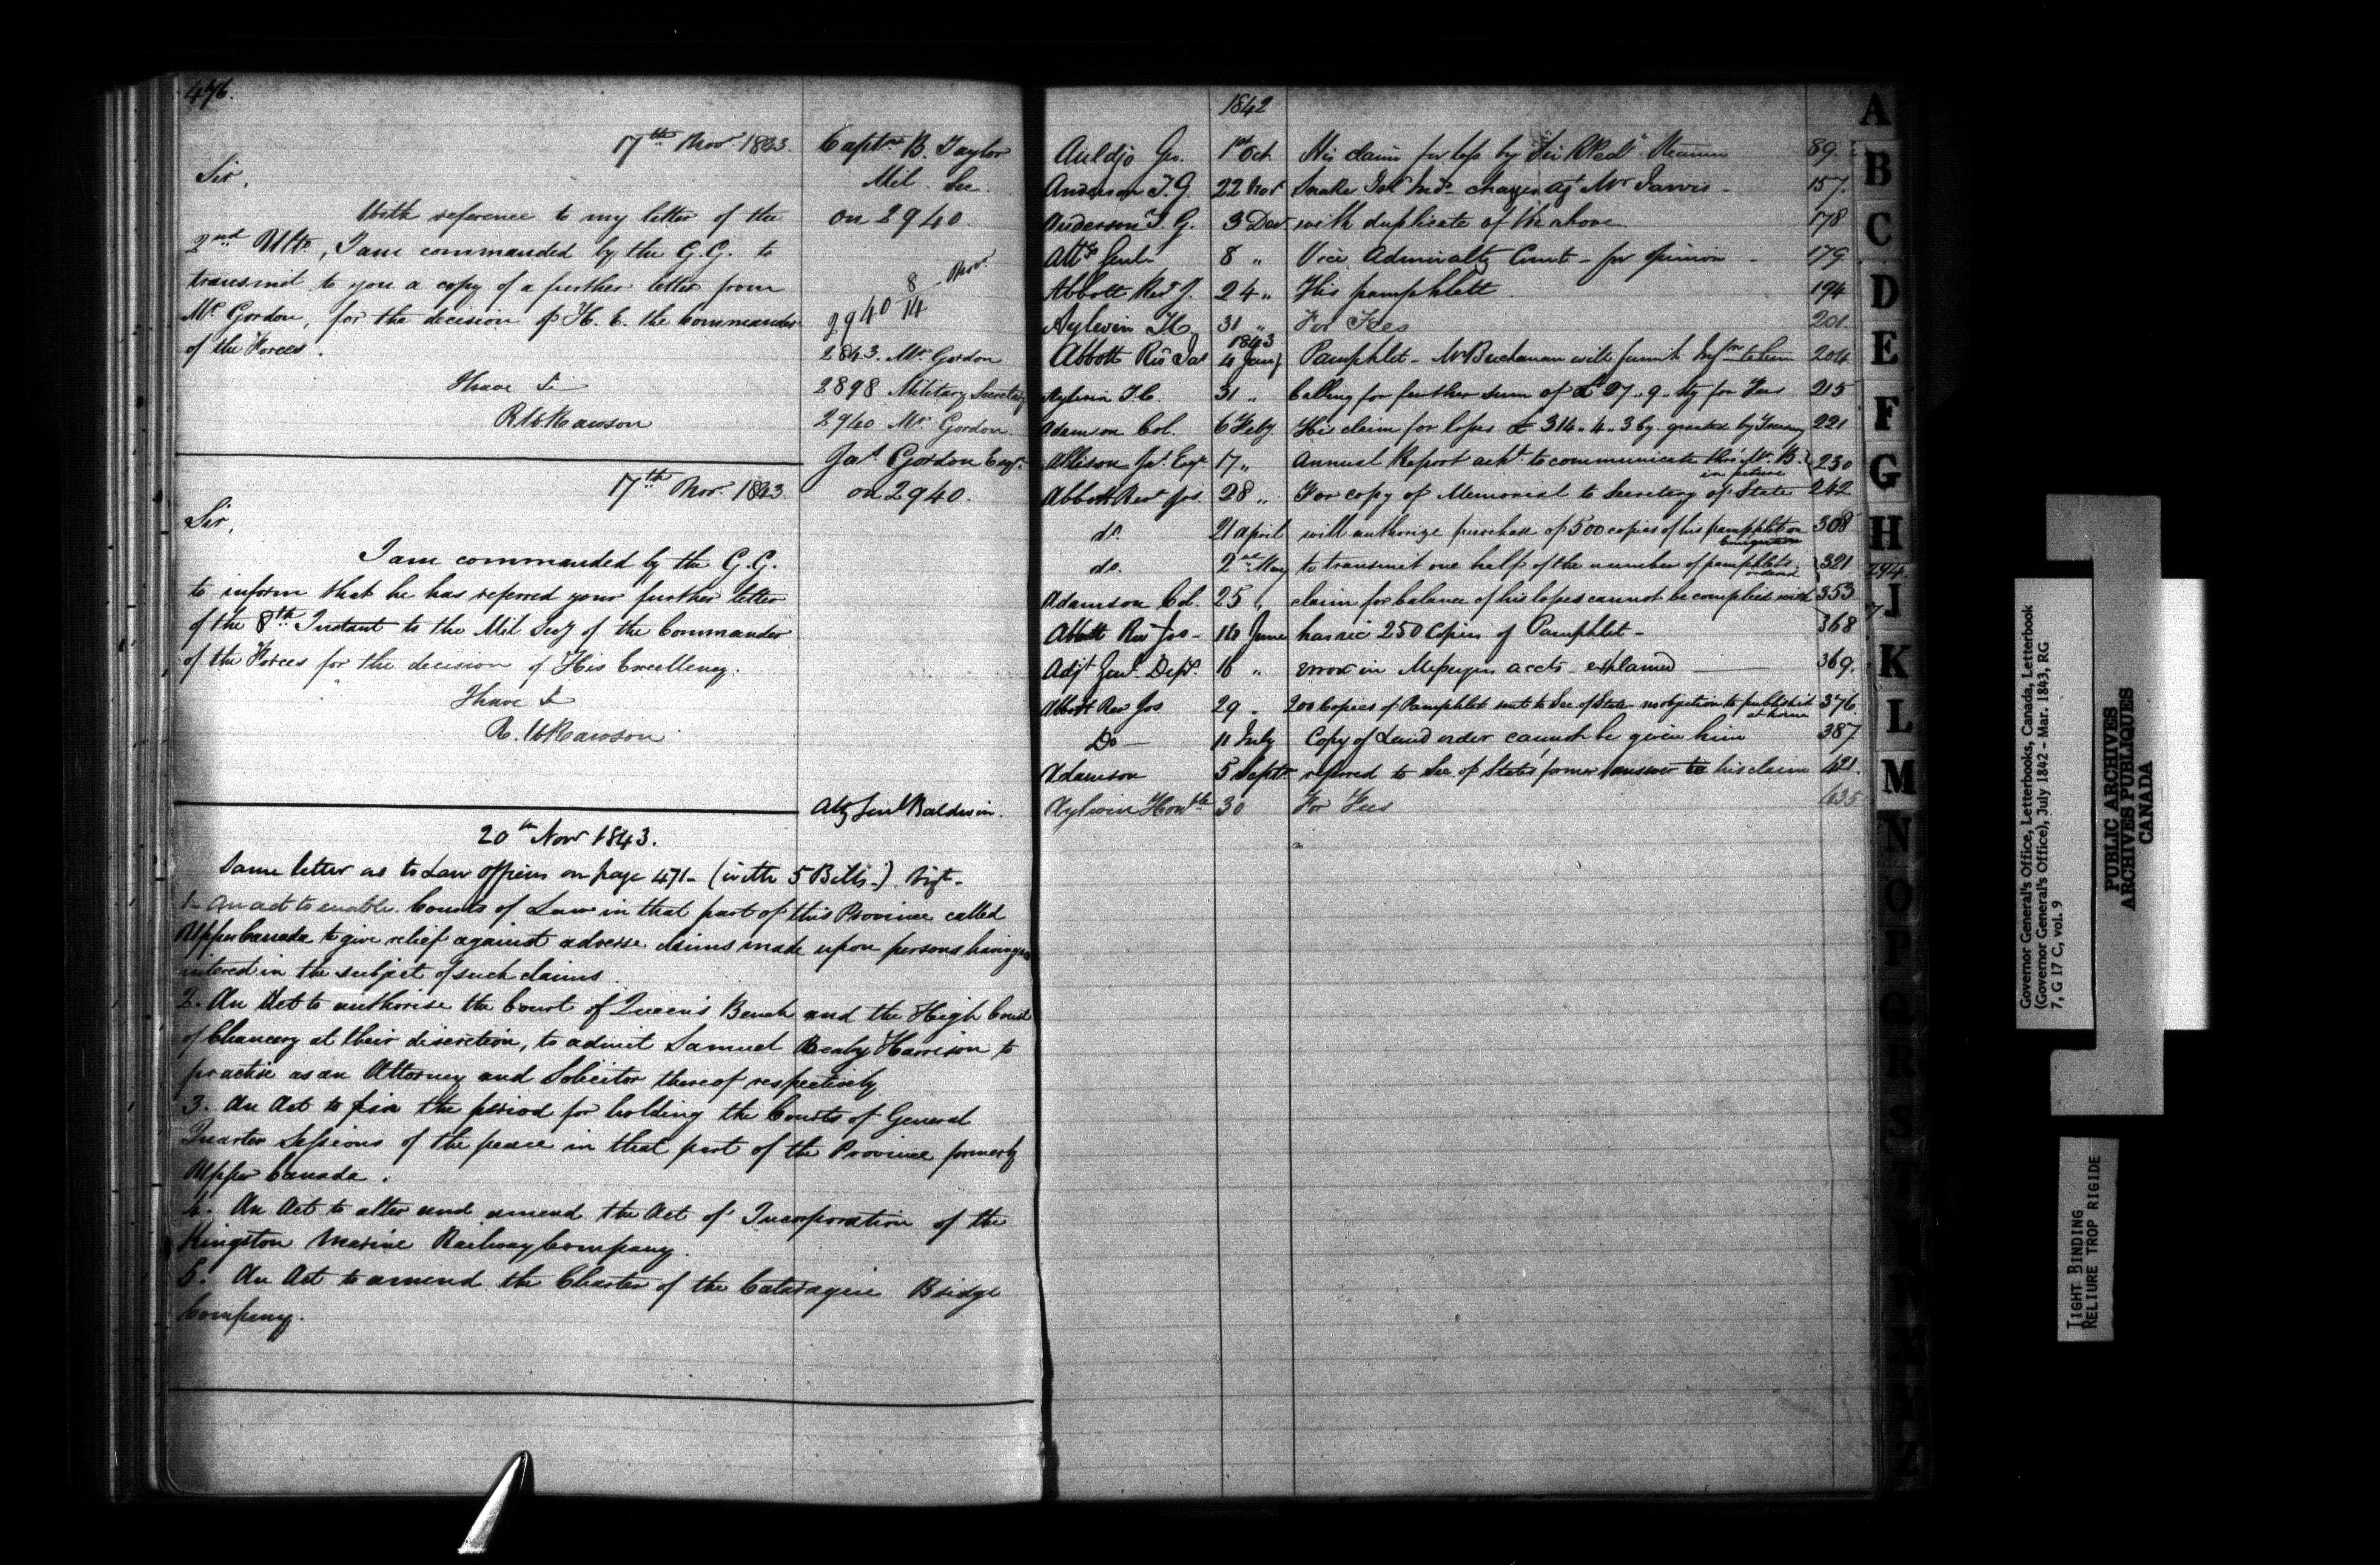 476.
17th Novr. 1843.
Captn. B. Taylor
Mil. Sec.
on 2940.
Sir,
With reference to my letter of the
2nd Ulto, I am commanded by the G.G. to
transmit to you a copy of a further letter from
Mr. Gordon, for the decision of H. E. the Commander
of the Forces.
I have &
R W Rawson
2940 8/14 Novr.
2843. Mr. Gordon
2898 Military Secretary
2940 Mr. Gordon
Jas. Gordon Esqr.
on 2940.
17th Novr. 1843.
Sir,
I am commanded by the G.G.
to inform that he has referred your further letter
of the 8th Instant to the Mil Secy of the Commander
of the Forces for the decision of His Excellency.
I have &
R. W Rawson
Atty Genl Baldwin.
20th Novr 1843.
Same letter as to Law officers on page 471- (with 5 Bills-) vizt-
1- An act to enable Courts of Law in that part of this Province called
Upper Canada to give relief against adverse claims made upon persons having no
interest in the subject of such claims.
2. An Act to authorise the Court of Queen's Bench and the High Court
of Chancery at their discretion, to admit Samuel Bealy Harrison to
practise as an Attorney and Solicitor thereof respectively
3. An Act to fix the period for holding the Courts of General
Quarter Sessions of the peace in that part of the Province formerly
Upper Canada.
4. An Act to alter and amend the Act of Incorporation of the
Kingston Marine Railway Company.
5. An Act to amend the Charter of the Cataraqui Bridge
Company.
1842
Auldjo Geo. 1st Oct. His claim for loss by "Sir R Peel" Steamer 89.
Anderson T. G. 22 Novr Snake Isld Inds charges agt Mr Jarvis - 157.
Anderson T. G. 3 Decr with duplicate of the above. 178
Atty Genl 8 " Vice Admiralty Court - for opinion - 179
Abbott Revd J. 24 " His pamphlett 194
Aylwin T C 31 " For Fees 201
1843
Abbott Revd Jos 4 Jany Pamphlet - Mr Buchanan will furnish Infon to him 204
Aylwin T. C. 31 " Calling for further sum of £27..9.. Stg for Fees 215
Adamson Col. 6 Feby His claim for losses £314..4..3 Cy. granted by Treasury 221
Allison Jas. Esqr 17 " Annual Report ackd. to communicate thro' Mr. B. in future 230
Abbott Revd Jos. 28 " For copy of Memorial to Secretary of State 242
do. 21 April will authorize purchase of 500 copies of his pamphlet on Emigration 308
do. 2nd May to transmit one half of the number of pamphlets ordered 321
Adamson Col. 25 " claim for balance of his losses cannot be complied with 353
Abbott Revd Jos - 10 June has rec 250 Copies of Pamphlet - 368
Adjt Genl Dept. 16 " error in accts - explained 369.
Abbott Rev Jos 29 " 200 Copies of Pamphlet sent to Sec of State - no objection to publish it at home 376.
Do - 11 July Copy of Land order cannot be given him 387.
Adamson 5 Septr referred to Sec. of State's former answer to his claim 421.
Aylwin Honble 30 For Fees 435
A
B
C
D
E
F
G
H
494.
I
K
L
M
N
O
P
Q
R
S
T
Z
Governor General's Office, Letterbooks, Canada, Letterbook
(Governor General's Office), July 1842 - Mar. 1843, RG
7, G 17 C, vol. 9
PUBLIC ARCHIVES
ARCHIVES PUBLIQUES
CANADA
TIGHT BINDING
RELIURE TROP RIGIDE